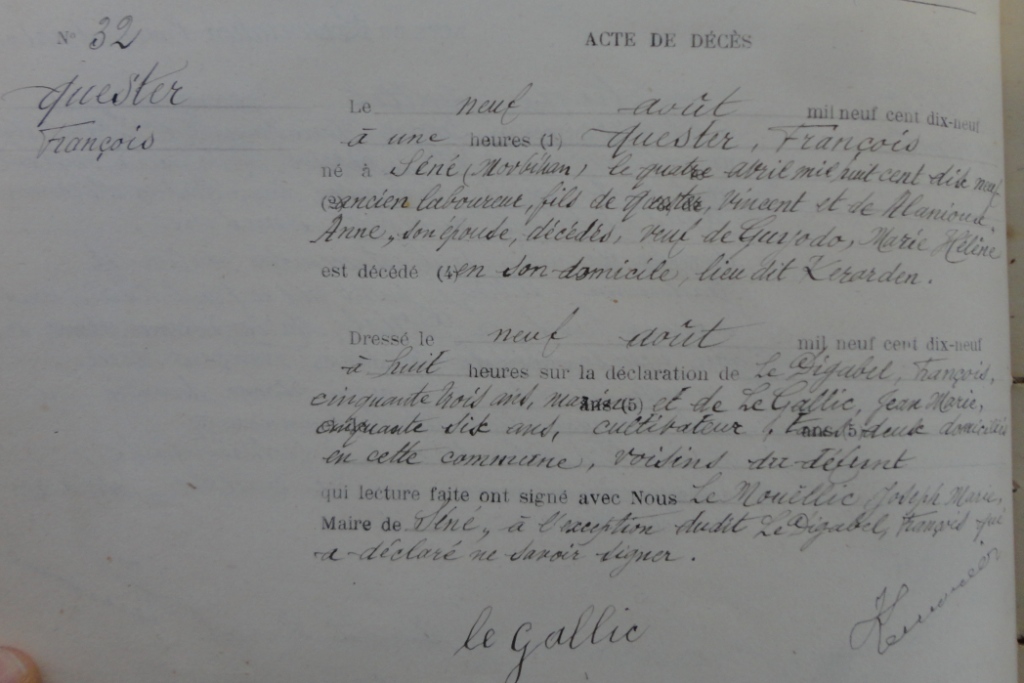 N° 32
ACTE DE DÉCÈS
Quester
François
Le neuf août mil neuf cent dix-neuf
à une heures (1) Quester, François
né à Séné (Morbihan) le quatre avril mil huit cent dix neuf
(2) ancien laboureur, fils de Quester, Vincent et de
Anne, son épouse, décédés, veuf de Marie Hélène
est décédé (4) en son domicile, lieu dit Kerarden.
Dressé le neuf août mil neuf cent dix-neuf
à huit heures sur la déclaration de Le Digabel, François,
cinquante trois ans, ans (5) et de Le Gallic, Jean Marie,
cinquante six ans, cultivateur, tous ans (5) deux domiciliés
en cette commune, voisins du défunt
qui lecture faite ont signé avec Nous Le Mouëllic, Joseph Marie,
Maire de Séné, à l'exception dudit Le Digabel, François qui
a déclaré ne savoir signer.
le gallic